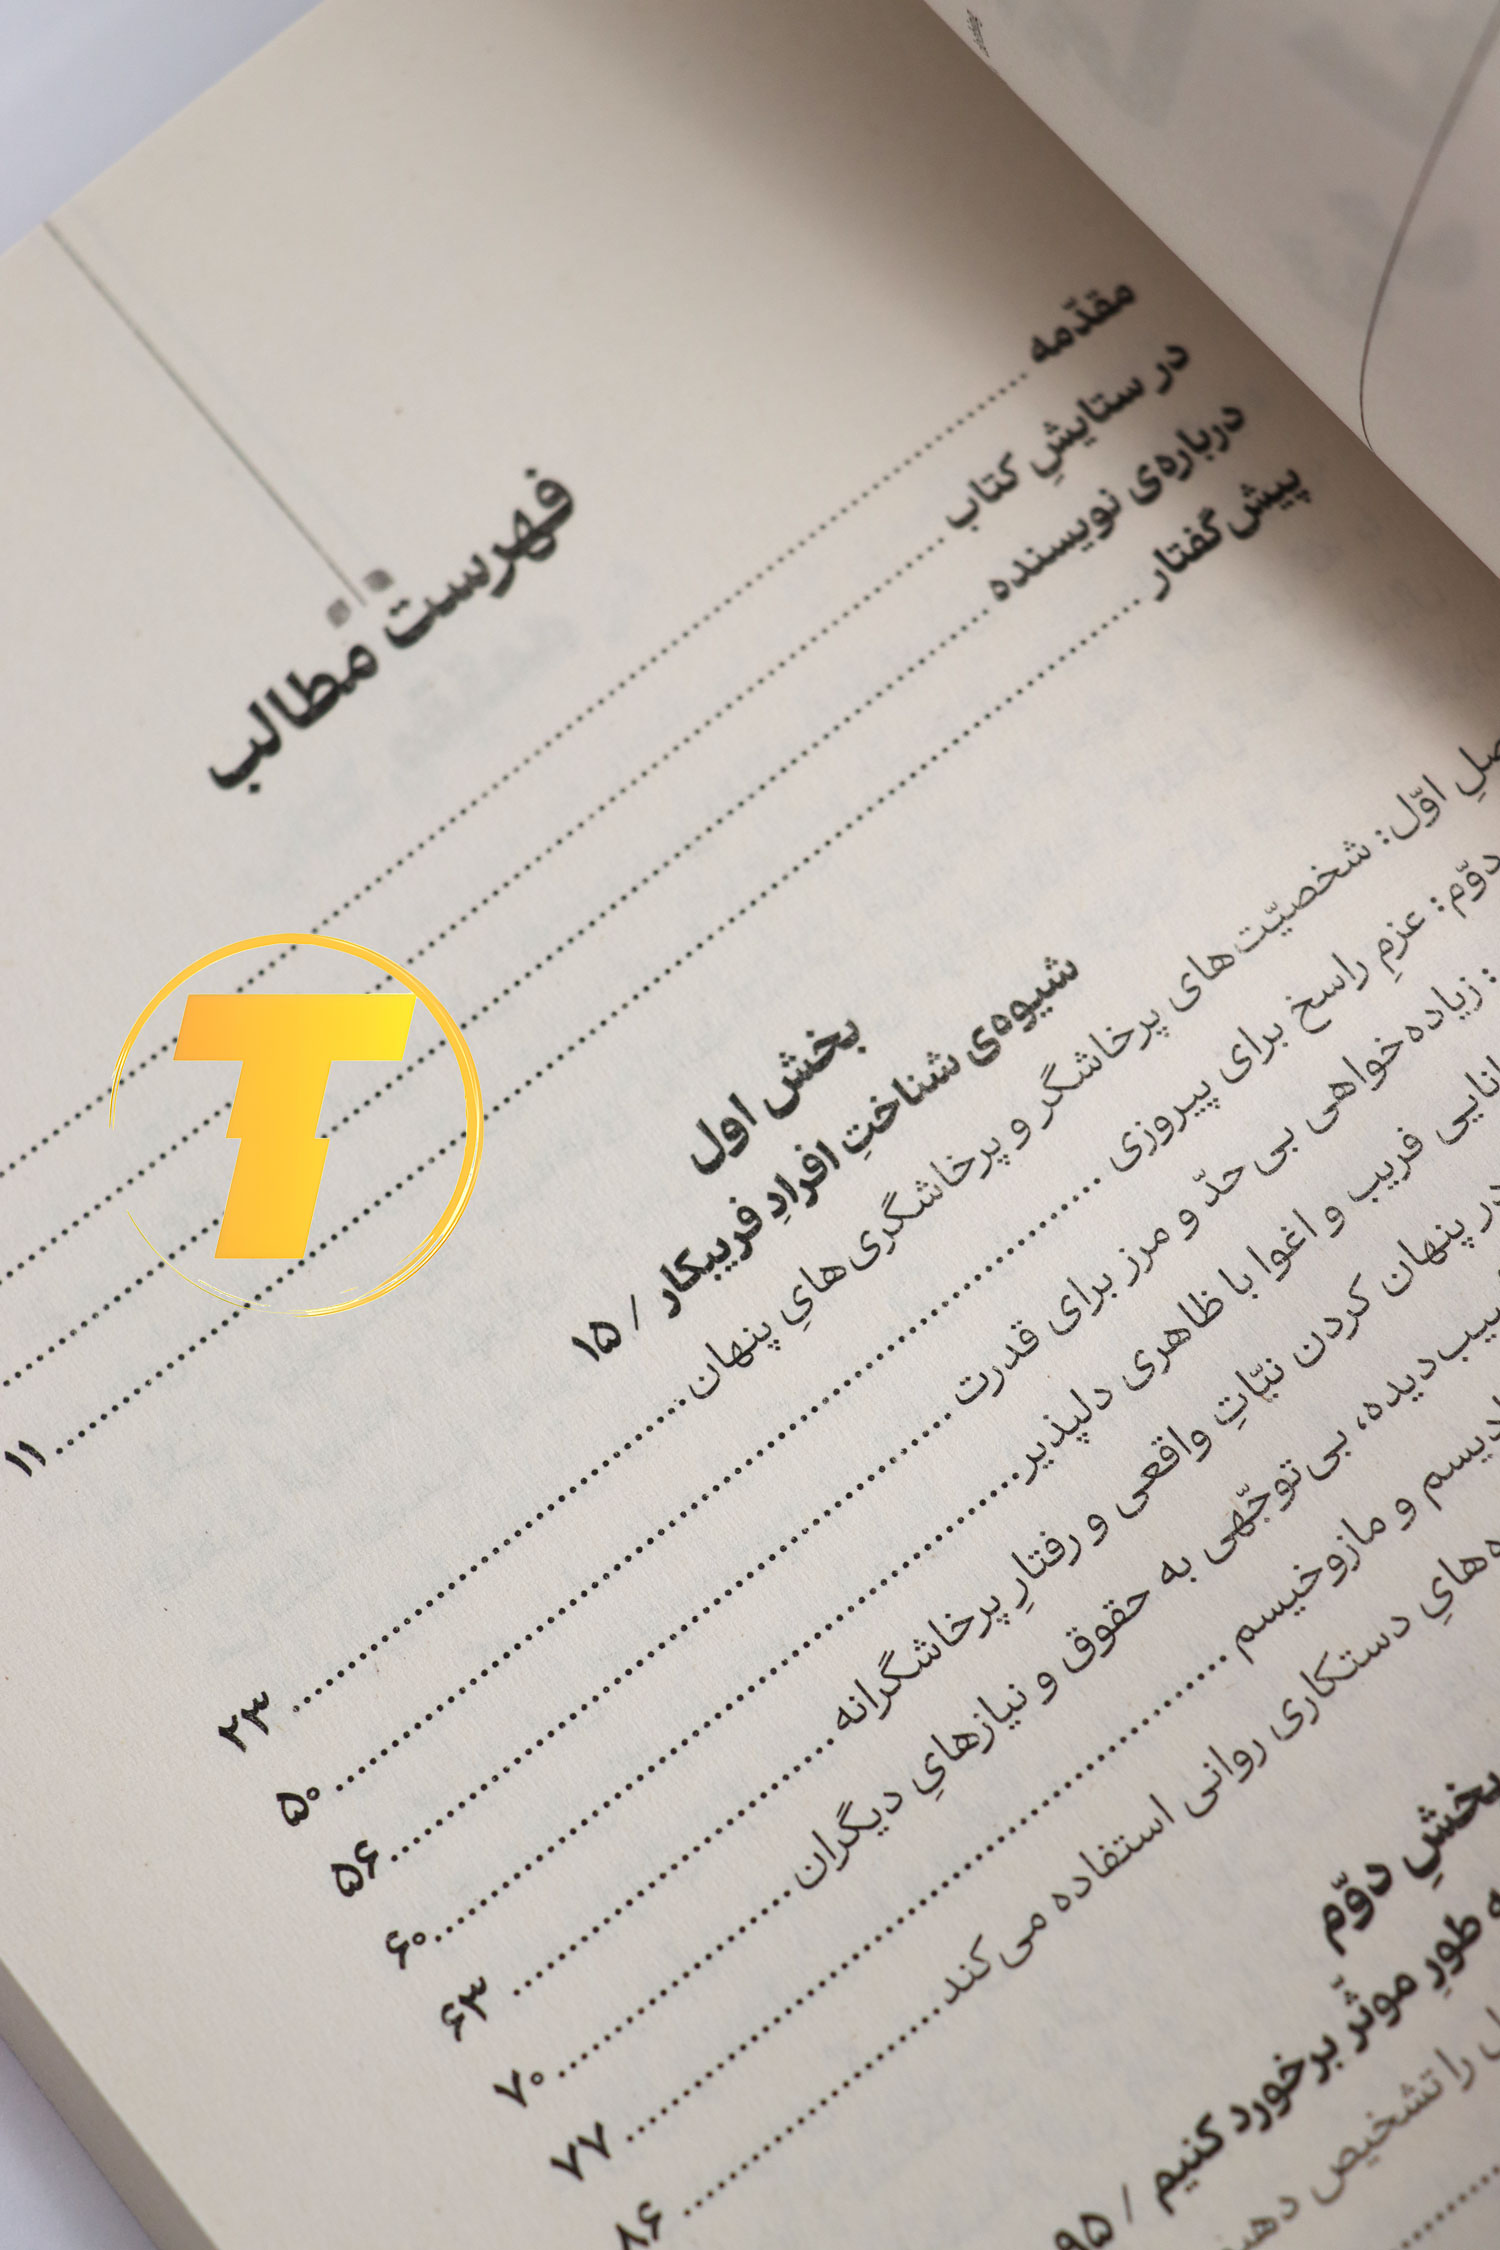 فهرست مطالب
مقدّمه
در ستایشِ کتاب
درباره‌ی نویسنده
پیش‌گفتار ۱۱
بخش اول
شیوه‌ی شناختِ افرادِ فریبکار / ۱۵
اوّل: شخصیّت‌های پرخاشگر و پرخاشگری‌هایِ پنهان ۲۳
دوّم: عزمِ راسخ برای پیروزی ۵۰
: زیاده‌خواهی بی حدّ و مرز برای قدرت ۵۶
فریب و اغوا با ظاهری دلپذیر ۶۰
در پنهان کردن نیّاتِ واقعی و رفتارِ پرخاشگرانه ۶۳
دیده، بی‌توجّهی به حقوق و نیازهایِ دیگران ۷۰
و مازوخیسم ۷۷
دستکاری روانی استفاده می‌کند ۸۶
بخشِ دوّم
طورِ موثّر برخورد کنیم / ۹۵
را تشخیص
T